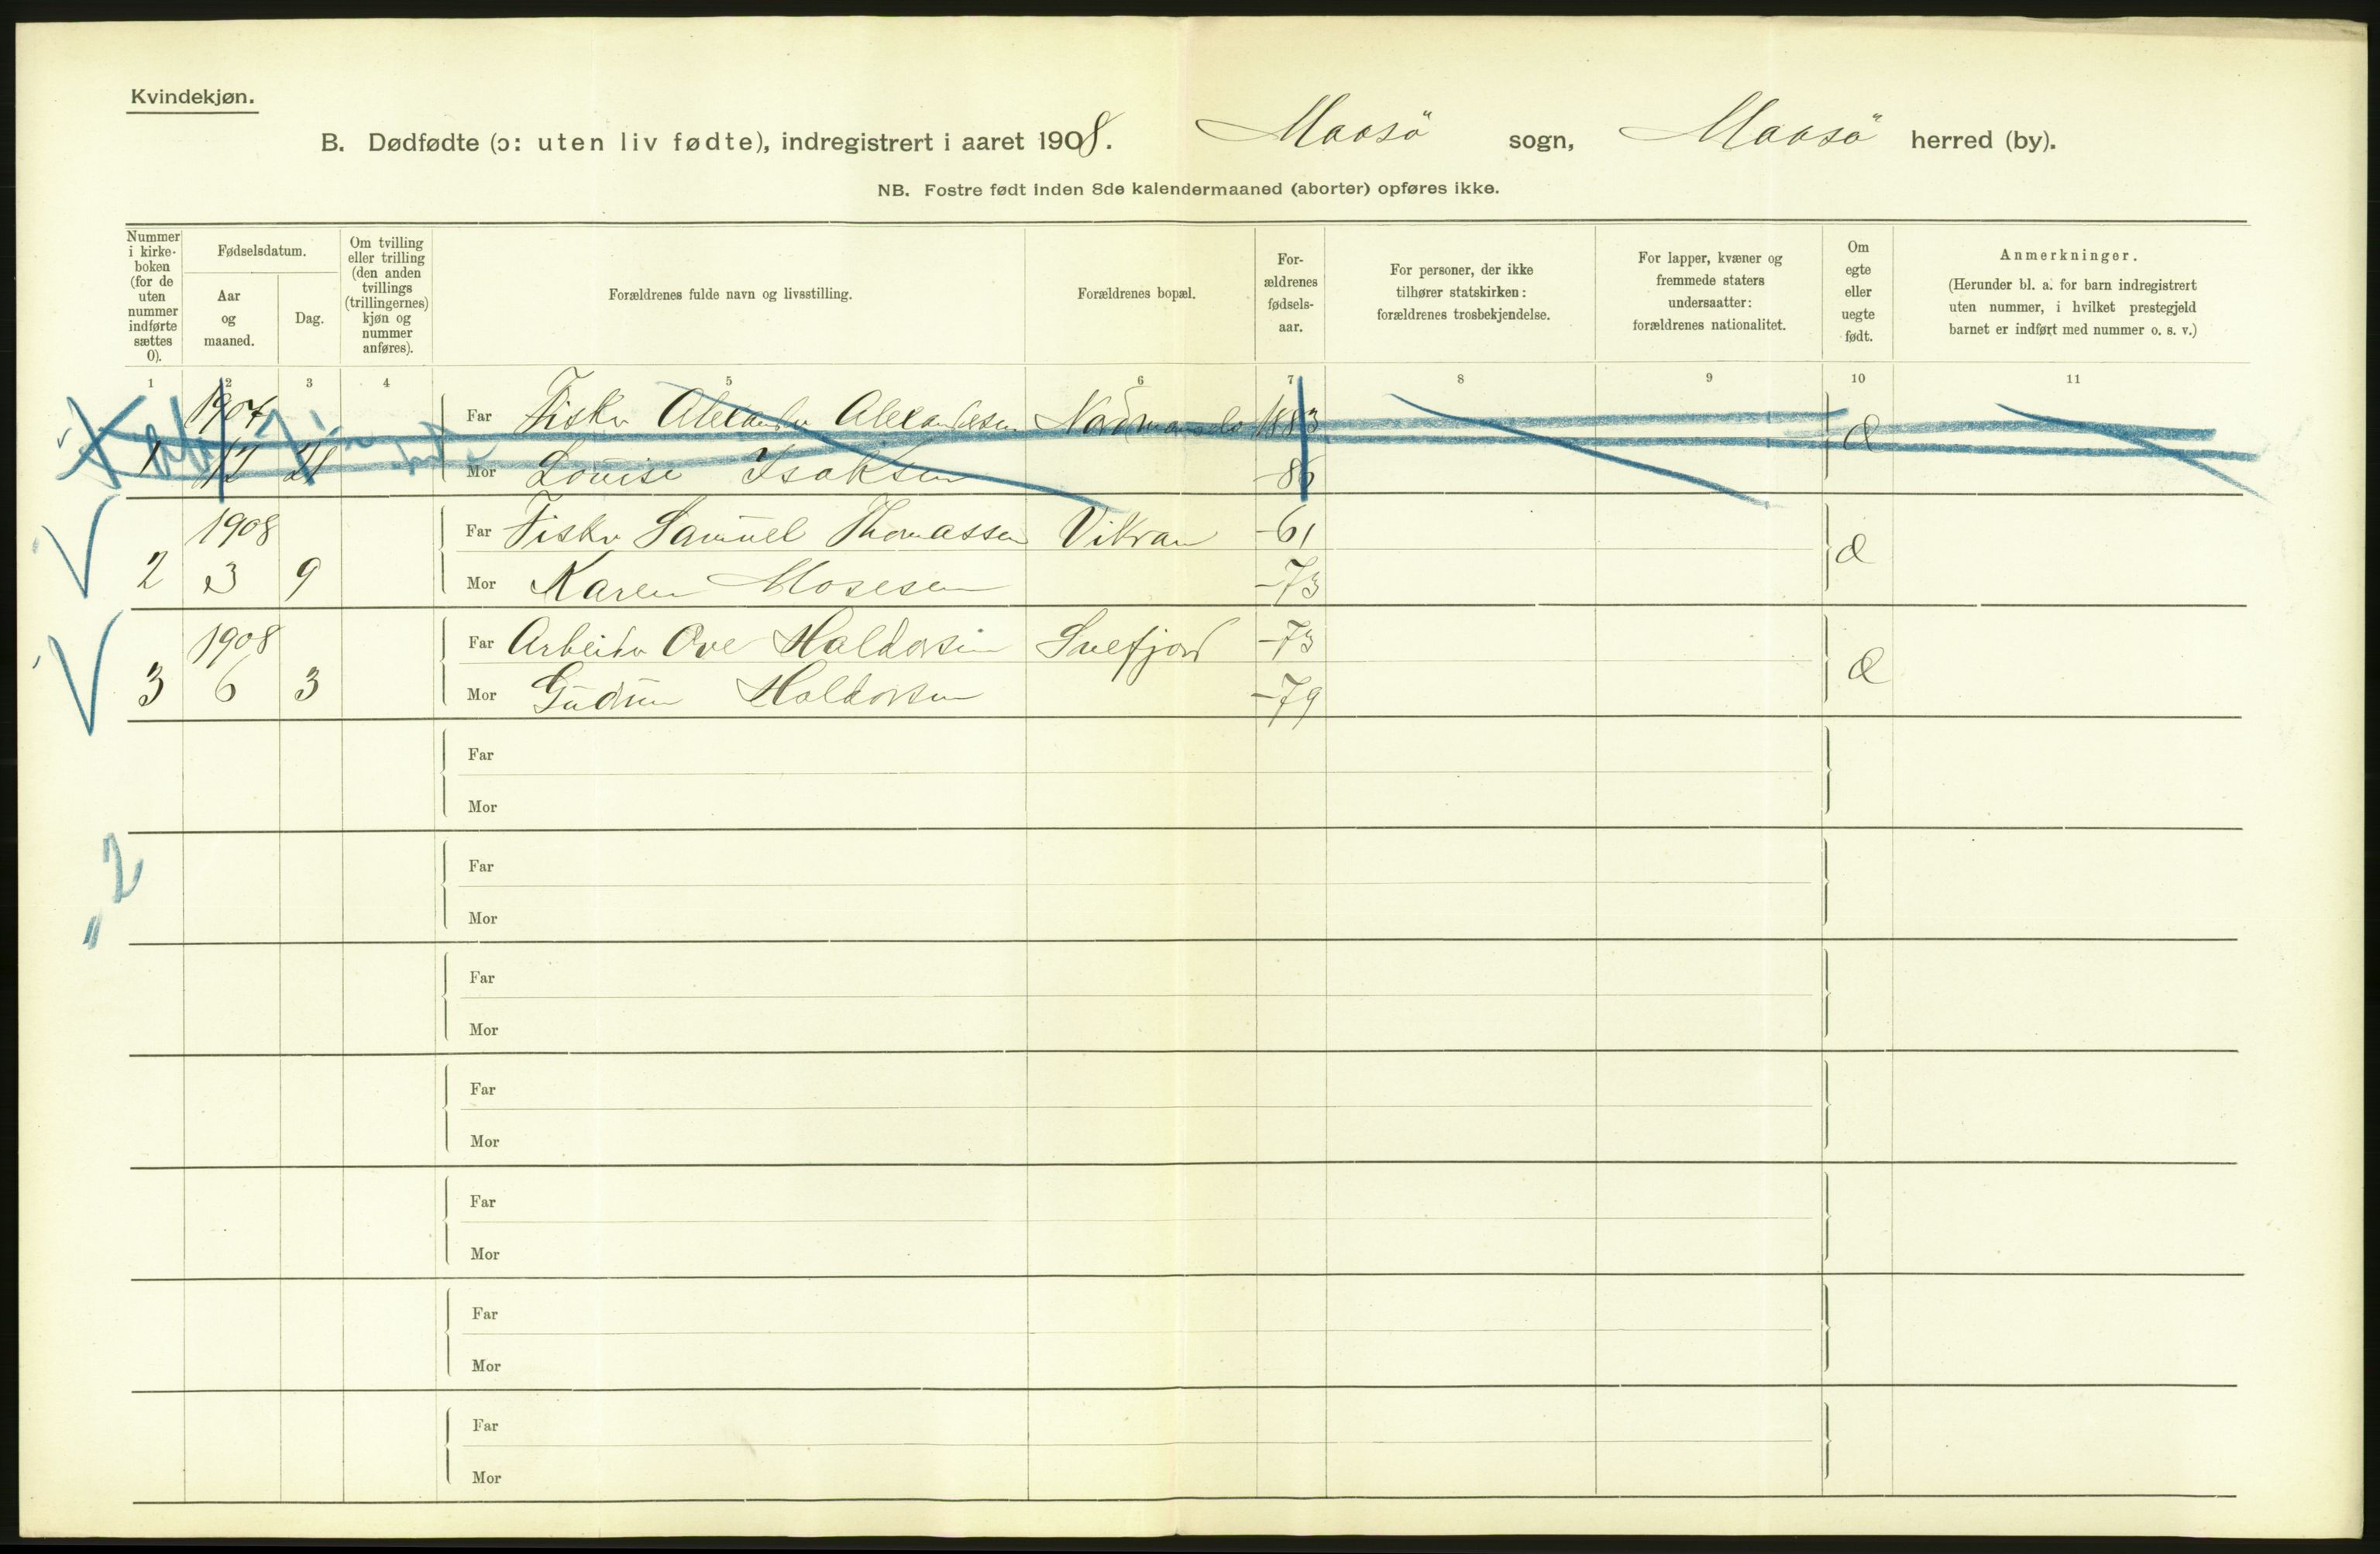 Kvindekjøn.
B. Dødfødte (ɔ: uten liv fødte), indregistrert i aaret 1908. Maasö sogn, Maasö herred (by).
NB. Fostre født inden 8de kalendermaaned (aborter) opføres ikke.
Nummer i kirke-boken (for de uten nummer indførte sættes 0).
Fødselsdatum.
Aar og maaned.
Dag.
Om tvilling eller trilling (den anden tvillings (trillingernes) kjøn og nummer anføres).
Forældrenes fulde navn og livsstilling.
Forældrenes bopæl.
For-ældrenes fødsels-aar.
For personer, der ikke tilhører statskirken: forældrenes trosbekjendelse.
For lapper, kvæner og fremmede staters undersaatter: forældrenes nationalitet.
Om egte eller uegte født.
Anmerkninger.
(Herunder bl. a. for barn indregistrert uten nummer, i hvilket prestegjeld barnet er indført med nummer o. s. v.)
1 2 3 4 5 6 7 8 9 10 11
1907 Far Fisker Alexander Alexandersen 1883
1 12 Mor Louise Isaksen
1908 Far Fisker Samuel Thomassen Vikran -61
2 3 9 Mor Karen Mosesen -73
1908 Far Arbeider Ove Haldorsen Snefjord -73
3 6 3 Mor Gudrun Haldorsen -79
Far
Mor
2
Far
Mor
Far
Mor
Far
Mor
Far
Mor
Far
Mor
Far
Mor